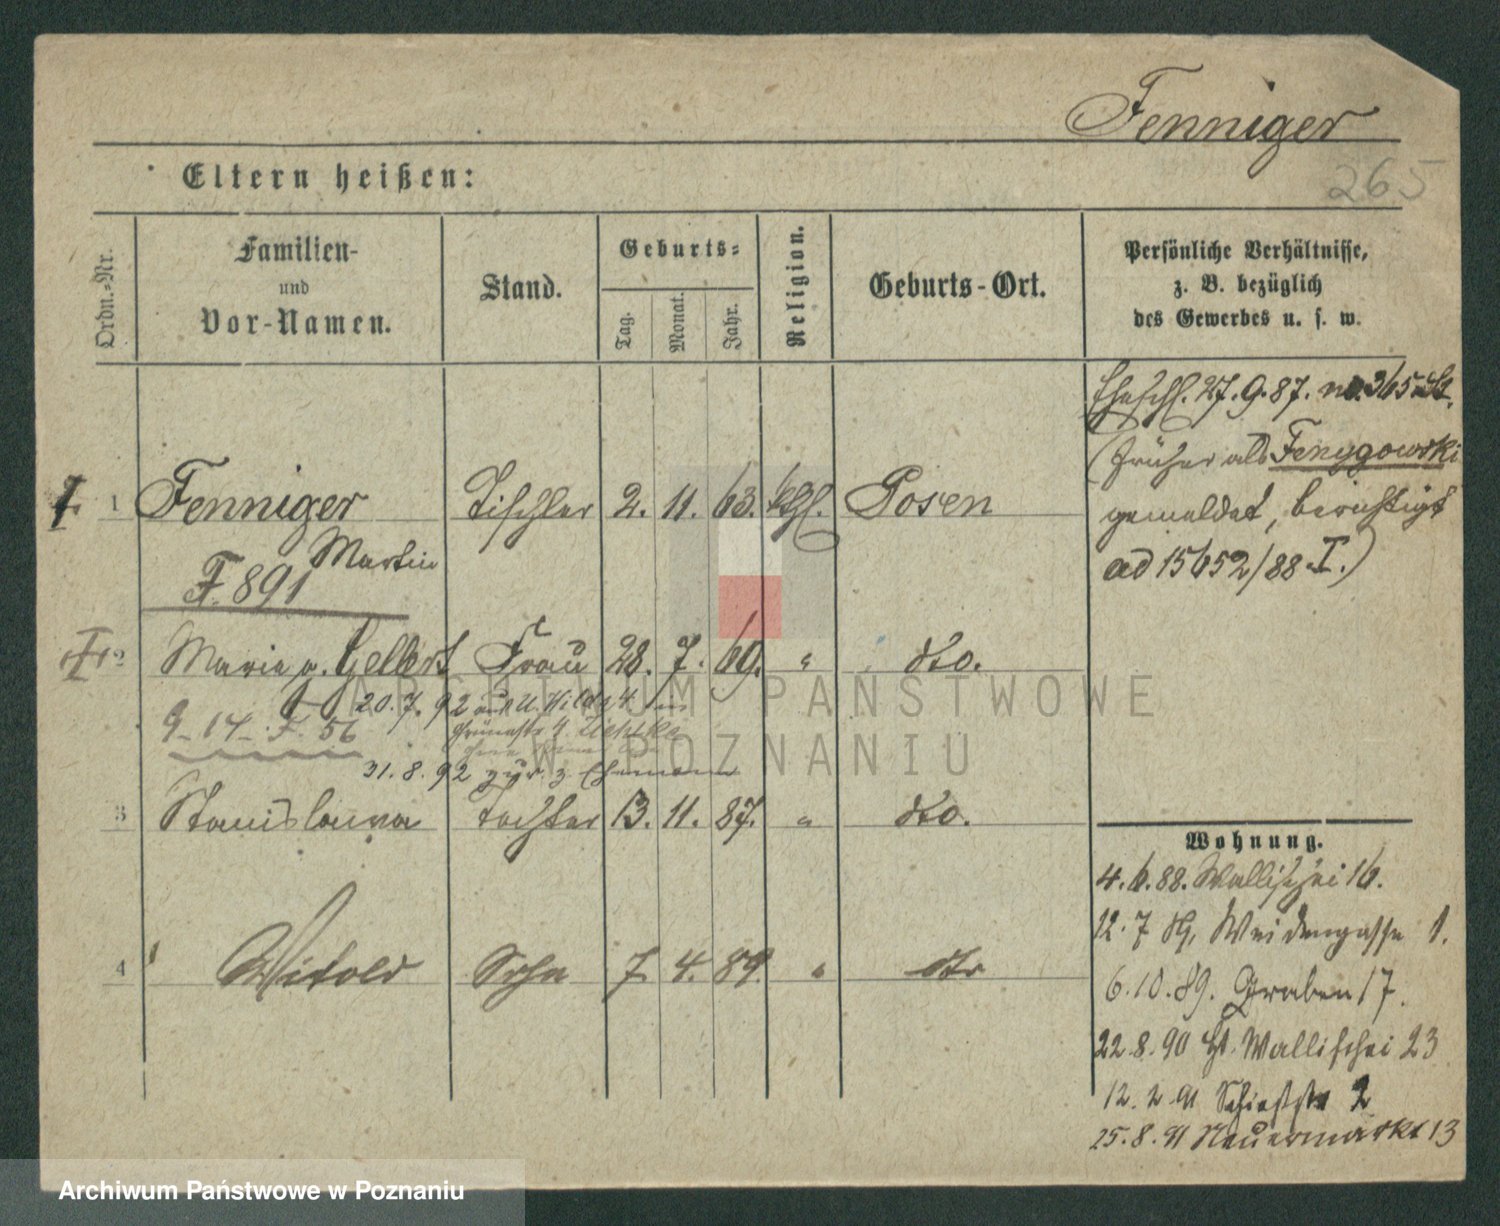 Fenniger
265
Eltern heißen:
Ordn.-Nr.
Familien-
und
Vor-Namen.
Stand.
Geburts-
Tag.
Monat.
Jahr.
Religion.
Geburts-Ort.
Persönliche Verhältnisse,
z. B. bezüglich
des Gewerbes u. s. w.
Eheschl. 27.9.87. no. 365
(früher als Fenygowski
gemeldet, berichtigt
ad 15652/88.I.)
1 Fenniger Tischler 2. 11. 63. kth. Posen
Martin
F. 891
2 Maria g. Gellert Frau 28. 7. 69. " dto.
20.7.92
9-14-F. 56
31.8.92 zur. z. Ehemann
3 Stanislawa Tochter 13. 11. 87. " dto.
4 Witold Sohn 7. 4. 89. " dto
Wohnung.
4.6.88. Wallischei 16.
12.7 89, Weidengasse 1.
6.10.89. Graben 17.
22.8.90 Wallischei 23
12.2.91 Schießstr 2
25.8.91 Neuermarkt 13
ARCHIWUM PAŃSTWOWE
W POZNANIU
Archiwum Państwowe w Poznaniu